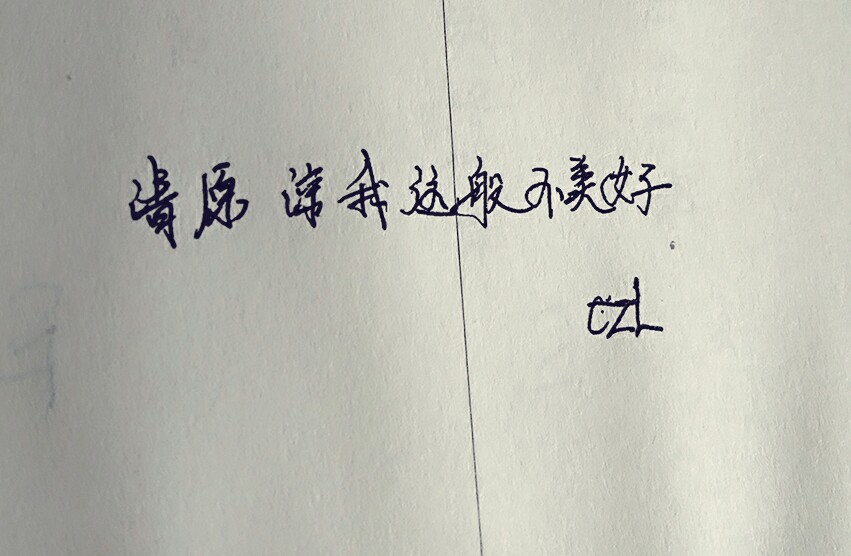 请原谅我这般不美好
CZL